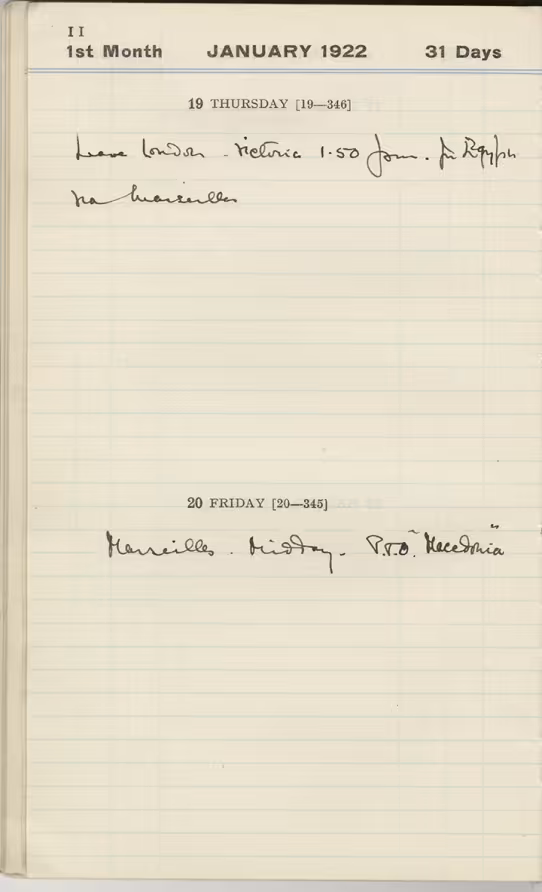 II
1st Month JANUARY 1922 31 Days
19 THURSDAY [19—346]
Leave London - Victoria 1.50 pm. for Egypt
via Marseilles
20 FRIDAY [20—345]
Marseilles. Midday. P.&O. "Macedonia"